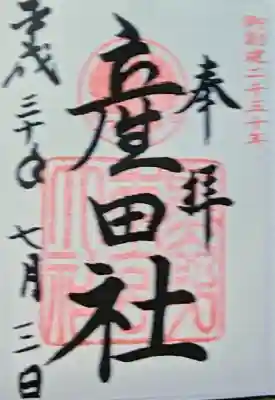 御創建二千三十年
奉拝
産田社
平成三十年七月三日